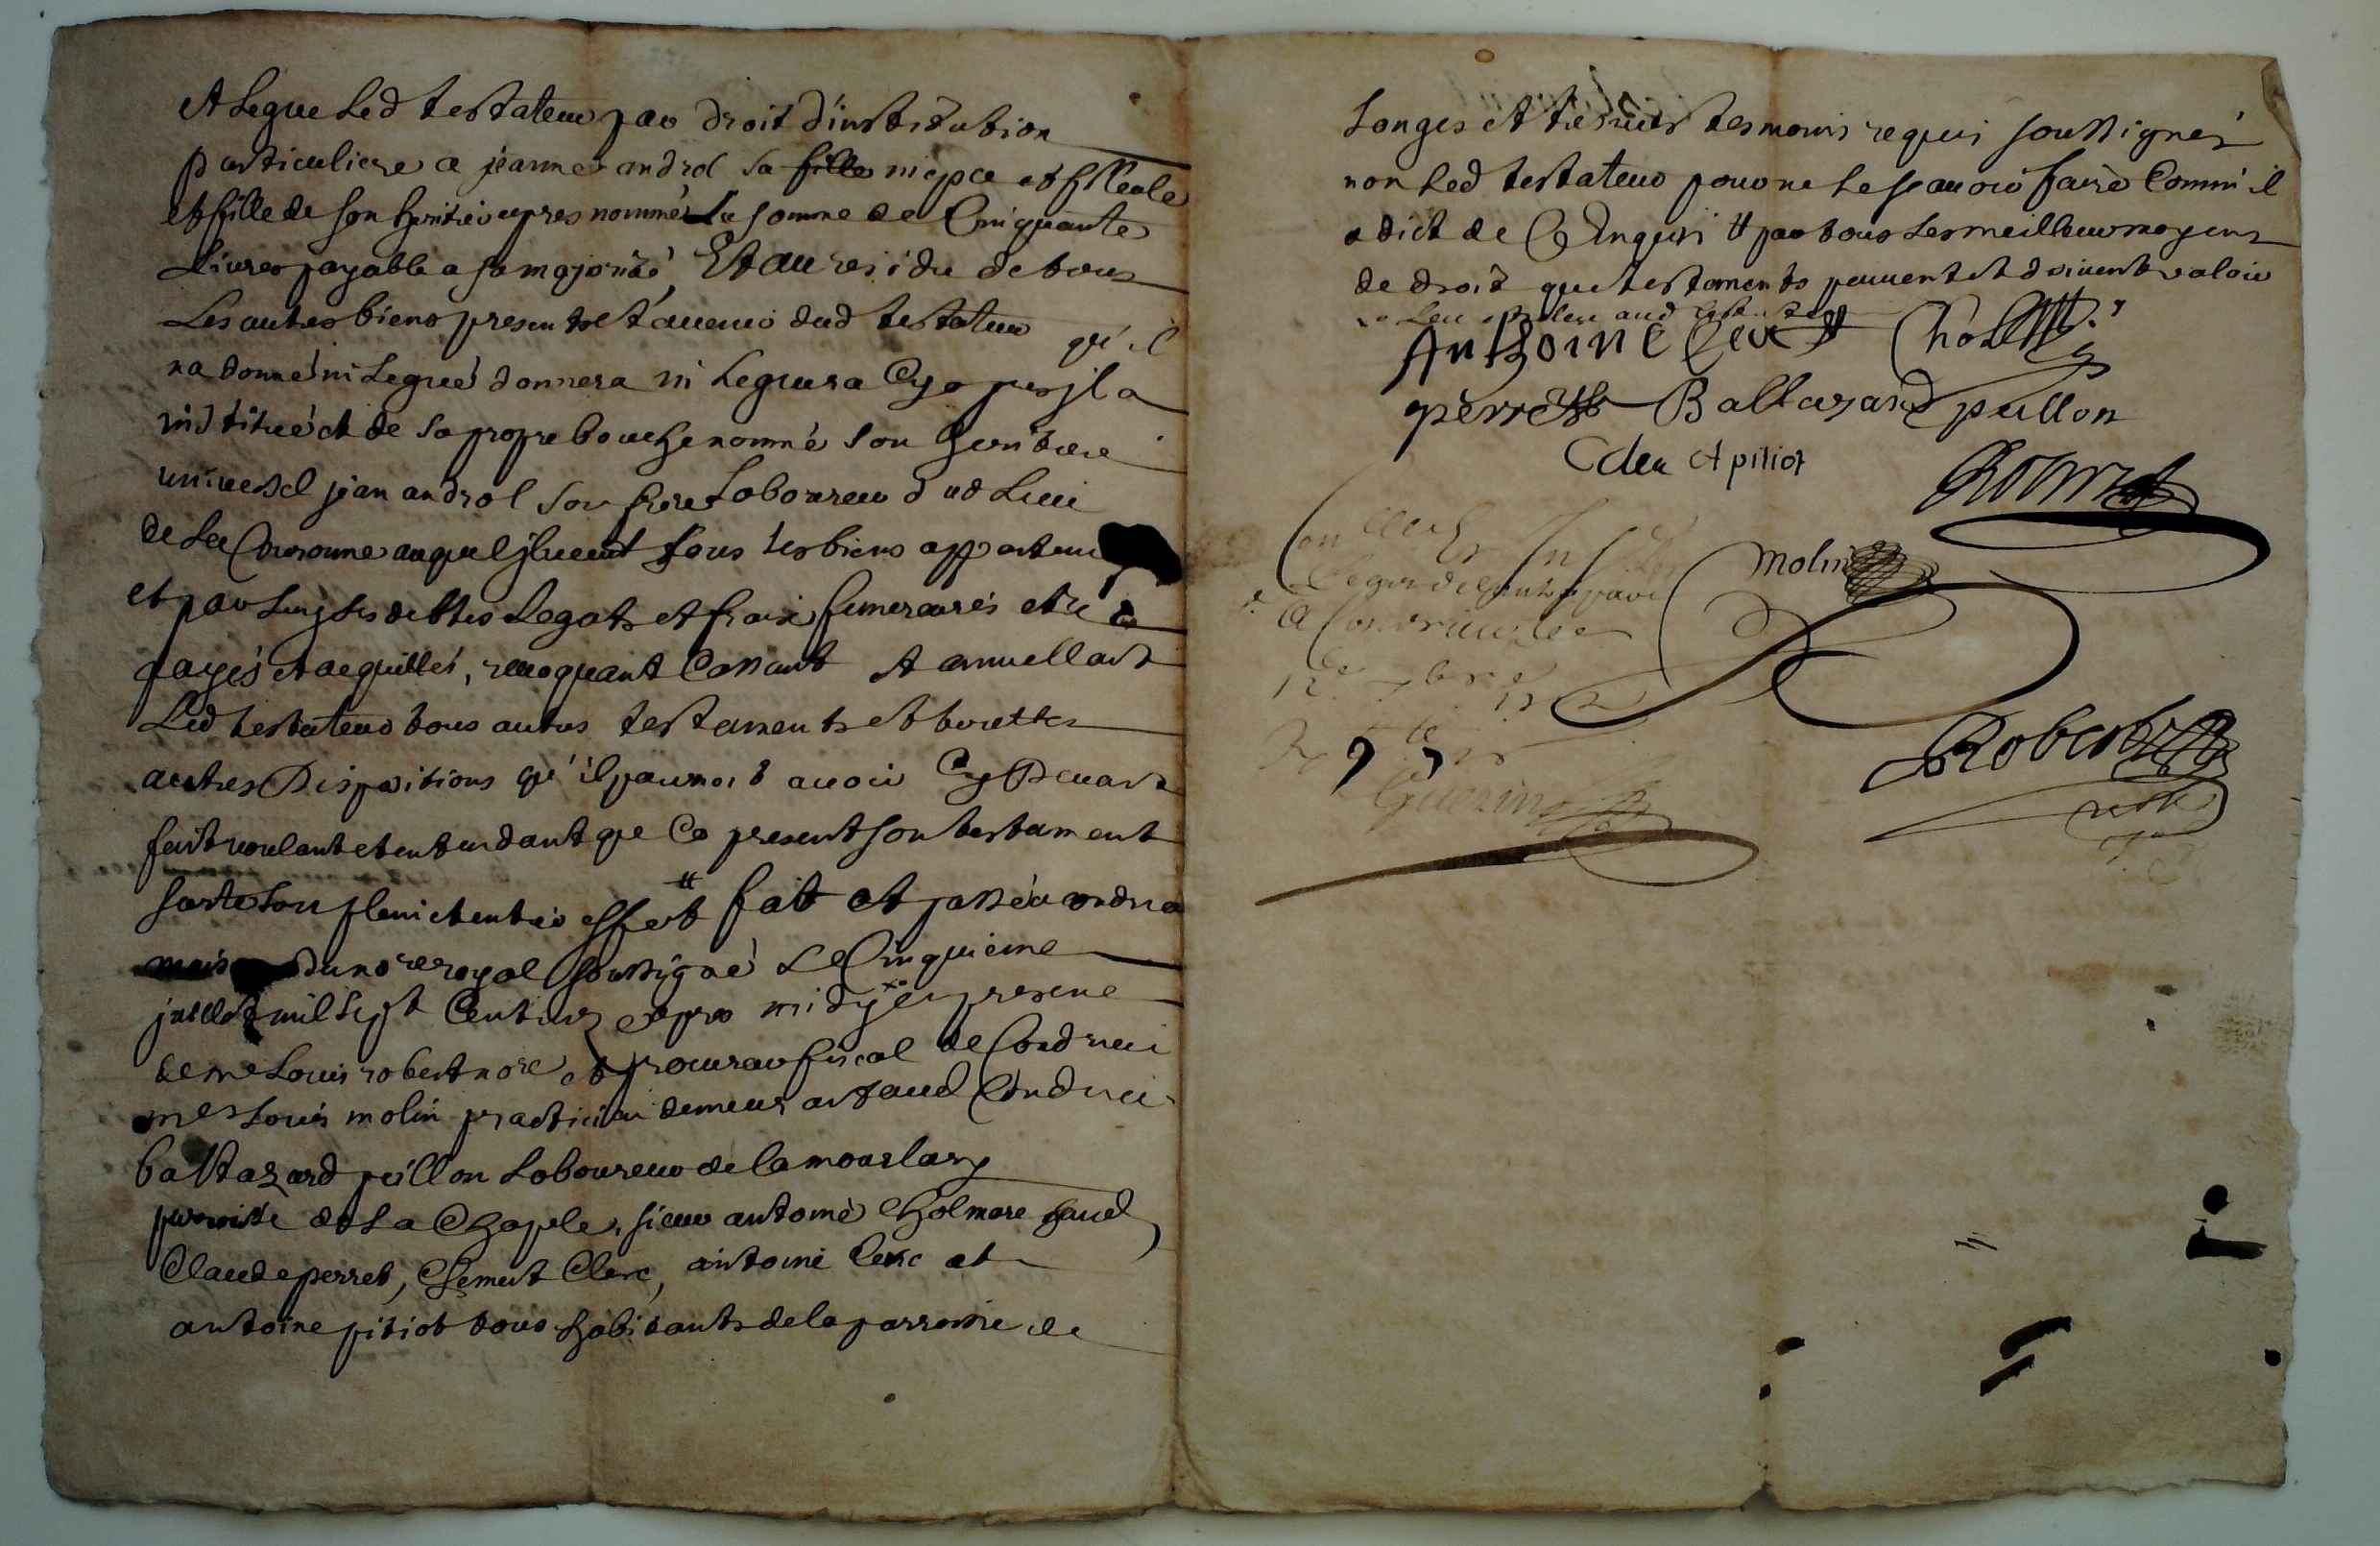 et legue led testateur par droit d'institution
particuliere a jeanne androl sa fille niepce et filleule
et fille de son heritier apres nommé la somme de Cinquante
Livres payable a sa majorité, Et au residu de tous
Les autres biens presents et avenir dud testateur qu'il
na donné ni Legué donnera ni leguera Cy apres jl a
institué et de sa propre bouche nommé son heritiere
universel jean androl son frere Laboureur dud Lieu
de La auquel jl veut tous ses biens appartenir
et par luy ses debtes Legats et fraix funeraires etre
payés et acquittés, revoquant Cassant et annullant
Led testateur tous autres testaments et toutes
autres Dispositions qu'il pourroit avoir Cy Devant
fait voulant et entendant que Ce present son testament
sorte son plein et entier effect fait et passé a
maison du nore royal soussigné Le Cinquieme
juillet mil sept Cent apres midy en presence
de me Louis robert nore et procureur fiscal de Condrieu
me Louis molin practicien demeurant aud Condrieu
baltazard pullon Laboureur de
parroisse de La Chapele, sieur antoine
Claude perret, Clement Clerc, antoine Clerc et
antoine pitiot tous habitants de la parroisse de
Longes et tesmoins requis soussignés
non Led testateur pour ne le scavoir faire Comm'il
a dict de Ce Enquis et par tous les meilleurs moyens
de droit que testaments peuvent et doivent valoir
Anthoine Clerc
perret Baltazard pullon
Clerc A pitiot
Molin
Robert
a Condrieu le
12e 7bre
Guerin